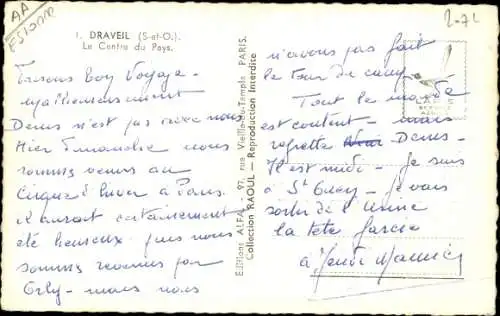 AA
ESSONNE
2-72
1. DRAVEIL (S-et-O.).
Le Centre du Pays.
Faisons bon Voyage -
Malheureusement
Denis n'est pas avec nous
Hier Dimanche nous
sommes venus au
Cirque d'hiver à Paris.
il aurait certainement
été heureux puis nous
sommes revenus par
Orly - mais nous
Editions ALFA - 97, rue Vieille-du-Temple PARIS.
Collection RAOUL - Reproduction Interdite
n'avons pas fait
le tour de
Tout le monde
est content - mais
regrette Denis -
Il est midi - je suis
à St - je vais
sortir de l'Usine
la tête farcie
à